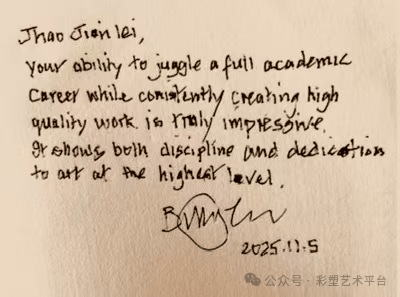 Jhao Jianlei,
Your ability to juggle a full academic
career while consistently creating high
quality work is truly impressive.
It shows both discipline and dedication
to art at the highest level.
2025.11.5
公众号 · 彩塑艺术平台